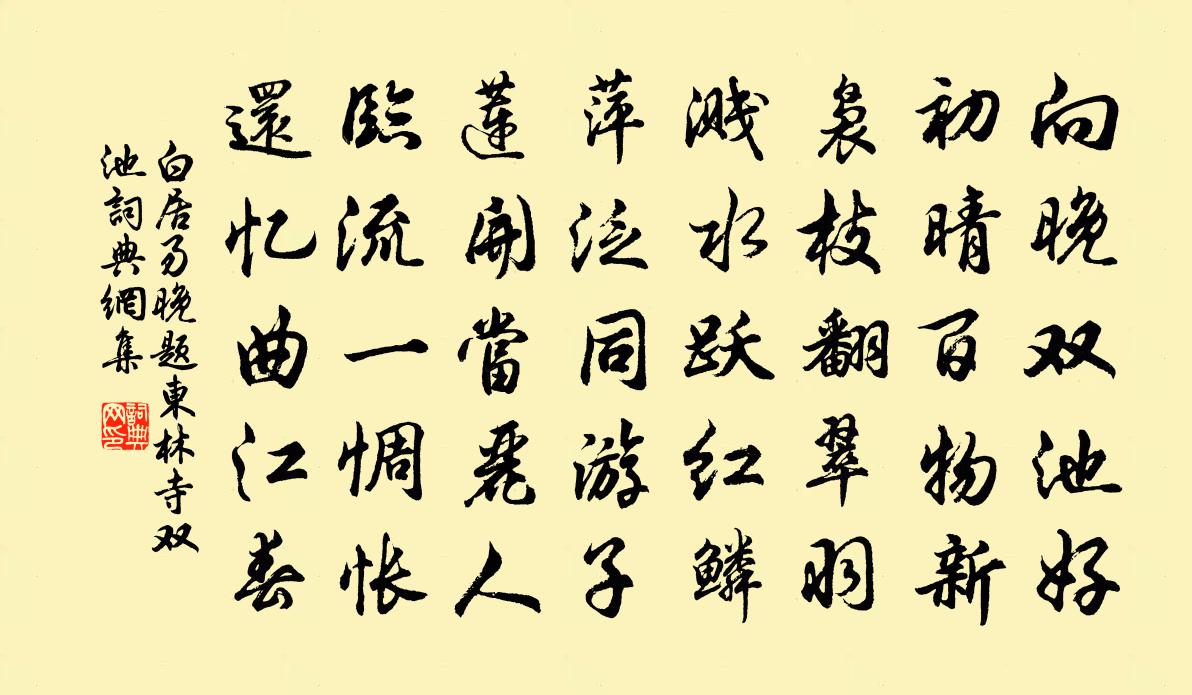 向晚双池好
初晴百物新
袅枝翻翠羽
溅水跃红鳞
萍泛同游子
莲開當麗人
臨流一惆怅
還忆曲江春
白居易晚题東林寺双
池詞典網集
詞典
网印